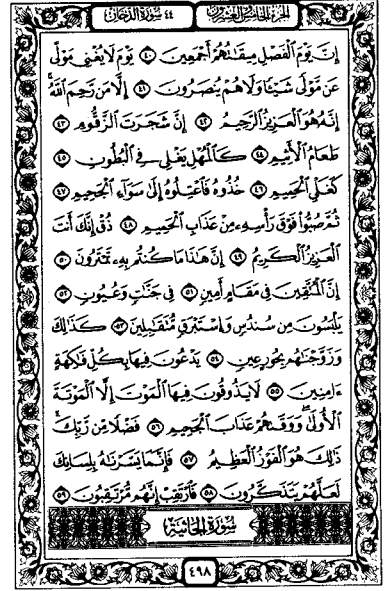 الجزء الخامس والعشرون ٤٤ سورة الدخان
إِنَّ يَوْمَ الْفَصْلِ مِيقَاتُهُمْ أَجْمَعِينَ ٤٠ يَوْمَ لَا يُغْنِي مَوْلًى
عَن مَّوْلًى شَيْئًا وَلَا هُمْ يُنصَرُونَ ٤١ إِلَّا مَن رَّحِمَ اللَّهُ ۚ
إِنَّهُ هُوَ الْعَزِيزُ الرَّحِيمُ ٤٢ إِنَّ شَجَرَتَ الزَّقُّومِ ٤٣
طَعَامُ الْأَثِيمِ ٤٤ كَالْمُهْلِ يَغْلِي فِي الْبُطُونِ ٤٥
كَغَلْيِ الْحَمِيمِ ٤٦ خُذُوهُ فَاعْتِلُوهُ إِلَىٰ سَوَاءِ الْجَحِيمِ ٤٧
ثُمَّ صُبُّوا فَوْقَ رَأْسِهِ مِنْ عَذَابِ الْحَمِيمِ ٤٨ ذُقْ إِنَّكَ أَنتَ
الْعَزِيزُ الْكَرِيمُ ٤٩ إِنَّ هَٰذَا مَا كُنتُم بِهِ تَمْتَرُونَ ٥٠
إِنَّ الْمُتَّقِينَ فِي مَقَامٍ أَمِينٍ ٥١ فِي جَنَّاتٍ وَعُيُونٍ ٥٢
يَلْبَسُونَ مِن سُندُسٍ وَإِسْتَبْرَقٍ مُّتَقَابِلِينَ ٥٣ كَذَٰلِكَ
وَزَوَّجْنَاهُم بِحُورٍ عِينٍ ٥٤ يَدْعُونَ فِيهَا بِكُلِّ فَاكِهَةٍ
ءَامِنِينَ ٥٥ لَا يَذُوقُونَ فِيهَا الْمَوْتَ إِلَّا الْمَوْتَةَ
الْأُولَىٰ ۖ وَوَقَاهُمْ عَذَابَ الْجَحِيمِ ٥٦ فَضْلًا مِّن رَّبِّكَ ۚ
ذَٰلِكَ هُوَ الْفَوْزُ الْعَظِيمُ ٥٧ فَإِنَّمَا يَسَّرْنَاهُ بِلِسَانِكَ
لَعَلَّهُمْ يَتَذَكَّرُونَ ٥٨ فَارْتَقِبْ إِنَّهُم مُّرْتَقِبُونَ ٥٩
سورة الجاثية
٤٩٨